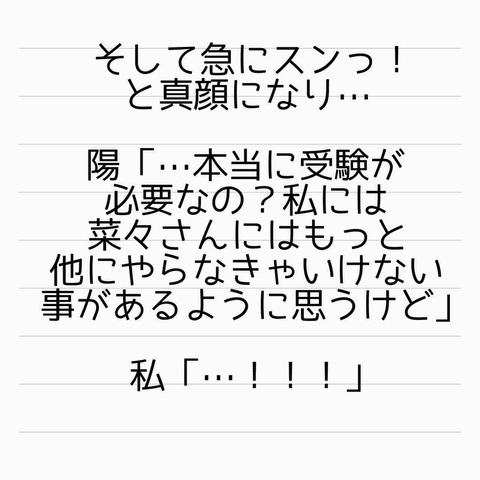 そして急にスンっ！
と真顔になり…
陽「…本当に受験が
必要なの？私には
菜々さんにはもっと
他にやらなきゃいけない
事があるように思うけど」
私「…！！！」